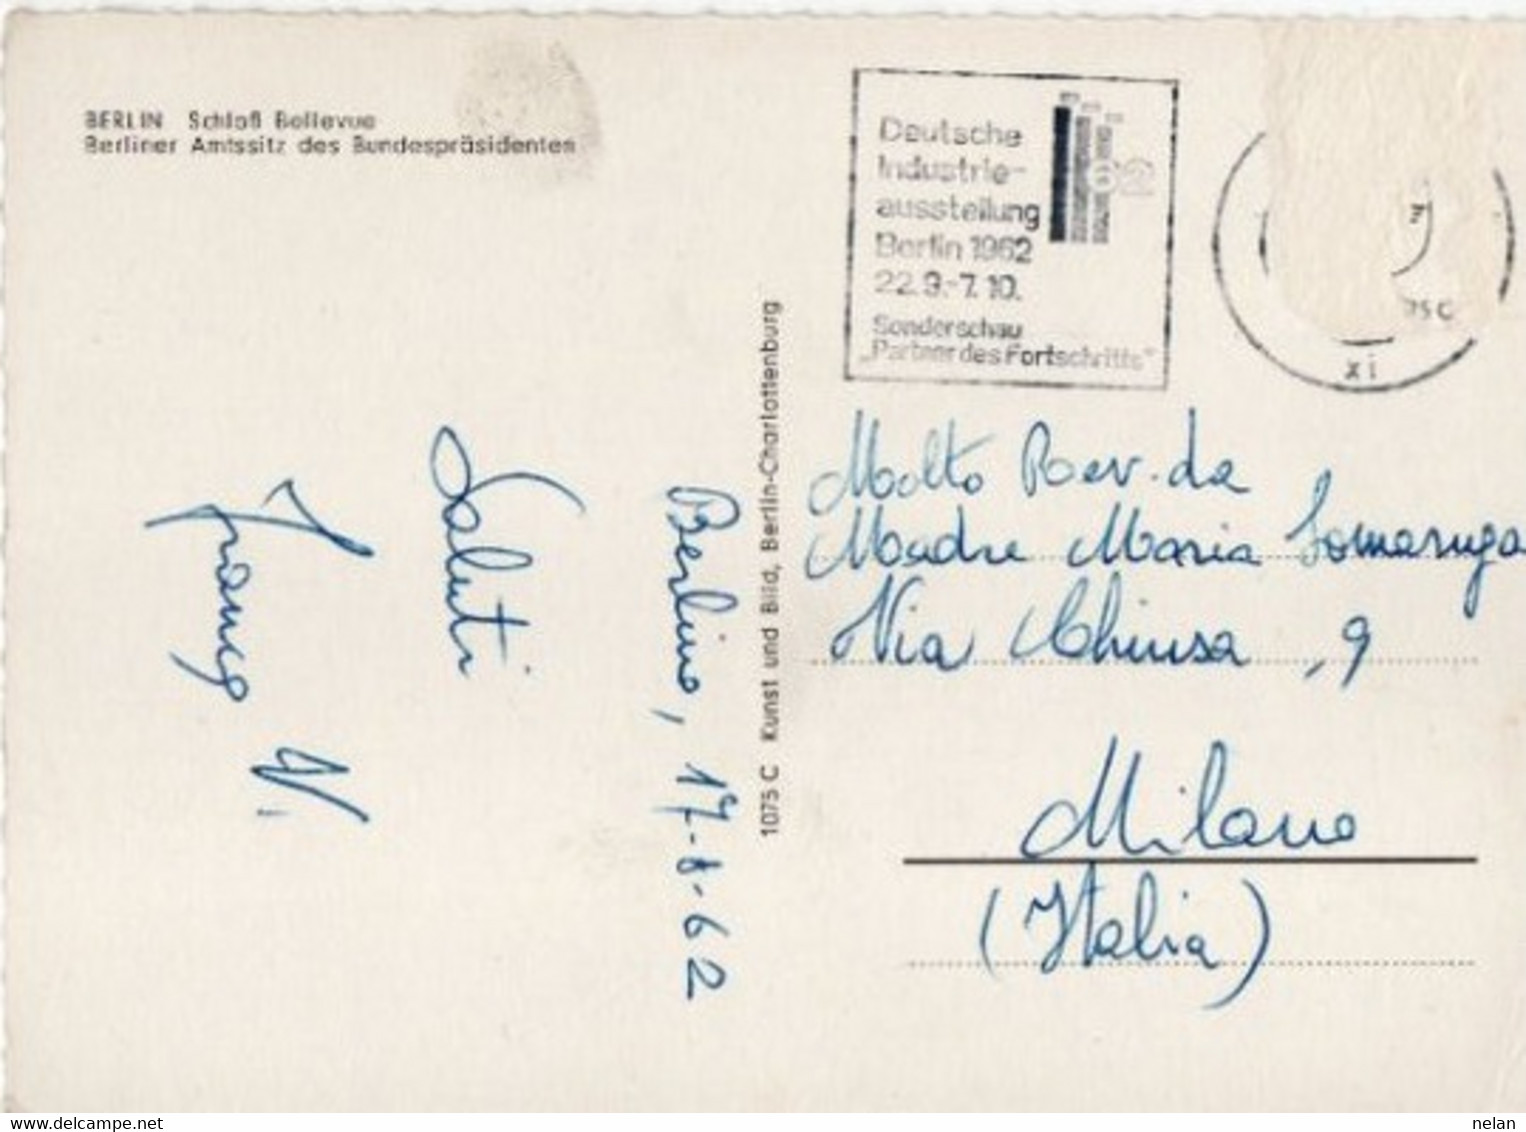 BERLIN Schloß Bellevue
Berliner Amtssitz des Bundespräsidenten
Deutsche
Industrie-
ausstellung
Berlin 1962
22.9.-7.10.
Sonderschau
„Partner des Fortschritts"
62
xi
1075 C Kunst und Bild, Berlin-Charlottenburg
Berlino, 17-8-62
Saluti
Molto Rev.da
Madre Maria Somaruga
Via Chiusa, 9
Milano
(Italia)
www.delcampe.net
nelan